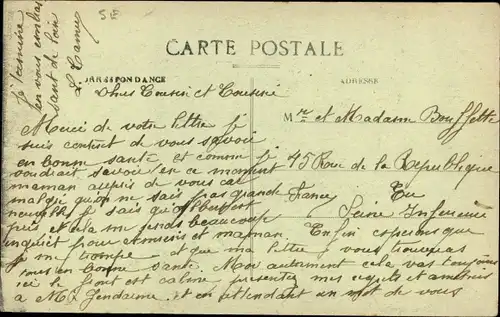 CARTE POSTALE
CORRESPONDANCE
ADRESSE
Chers Cousin et Cousine
Merci de votre lettre je
suis content de vous savoir
en bonne santé et comme je
voudrait savoir en ce moment
maman auprès de vous car
malgré qu'on ne sais pas grande
je sais qu'Albert est
pris et cela me fera beaucoup
inquiet pour et maman Enfin espérons que
je me trompe et que ma lettre vous trouveras
tous en bonne santé. Moi autrement cela va toujours
ici le front est calme, présentez mes respects et amitiés
à Mr Gendarme et en attendant un mot de vous
je termine
en vous embras
sant de loin
L. Camy
Mr et Madame Bouffette
45 Rue de la République
Eu
Seine Inférieure
SE